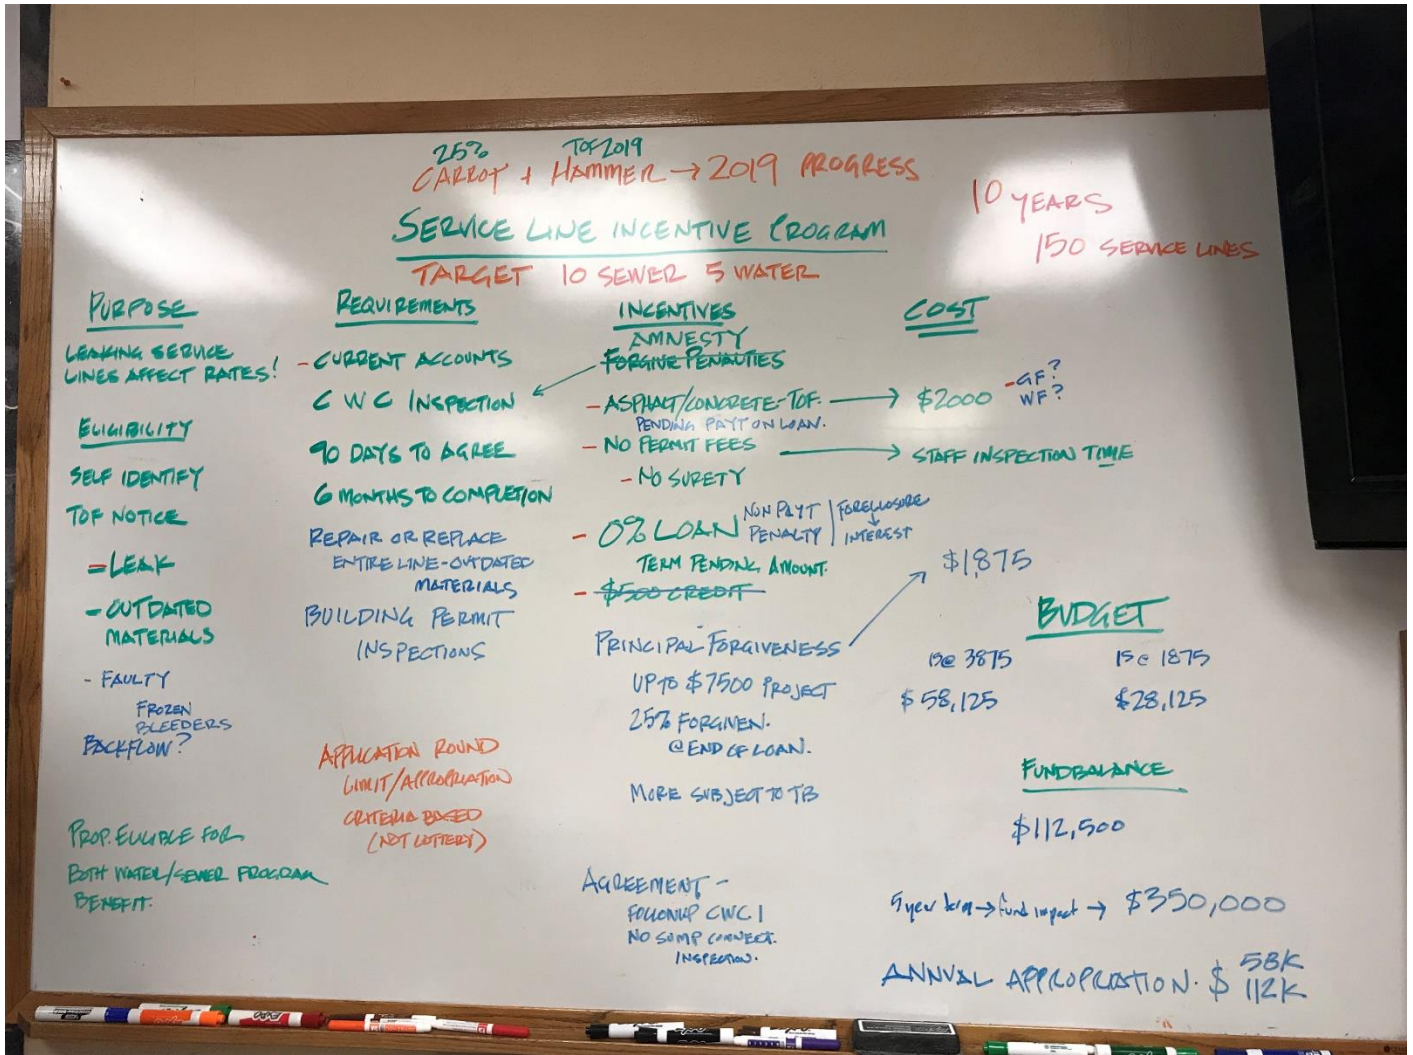 25% TOF 2019
CARROT + HAMMER → 2019 PROGRESS
10 YEARS
150 SERVICE LINES
SERVICE LINE INCENTIVE PROGRAM
TARGET 10 SEWER 5 WATER
PURPOSE
LEAKING SERVICE
LINES AFFECT RATES!
ELIGIBILITY
SELF IDENTIFY
TOF NOTICE
- LEAK
- OUTDATED
MATERIALS
- FAULTY
FROZEN
BLEEDERS
BACKFLOW?
PROP. ELIGIBLE FOR
BOTH WATER/SEWER PROGRAM
BENEFIT.
REQUIREMENTS
- CURRENT ACCOUNTS
CWC INSPECTION
90 DAYS TO AGREE
6 MONTHS TO COMPLETION
REPAIR OR REPLACE
ENTIRE LINE - OUTDATED
MATERIALS
BUILDING PERMIT
INSPECTIONS
APPLICATION ROUND
LIMIT/APPROPRIATION
CRITERIA BASED
(NOT LOTTERY)
INCENTIVES
AMNESTY
FORGIVE PENALTIES
- ASPHALT/CONCRETE-TOF.
PENDING PAYT ON LOAN.
- NO PERMIT FEES
- NO SURETY
- 0% LOAN
NON PAYT
PENALTY
FORECLOSURE
↓
INTEREST
TERM PENDING AMOUNT.
- $500 CREDIT
PRINCIPAL FORGIVENESS
UP TO $7500 PROJECT
25% FORGIVEN.
@ END OF LOAN.
MORE SUBJECT TO TB
AGREEMENT -
FOLLOWUP CWC I
NO SUMP CONNECT.
INSPECTION.
COST
→ $2000
- GF?
WF?
→ STAFF INSPECTION TIME
$1,875
BUDGET
15@ 3875 15@ 1875
$58,125 $28,125
FUNDBALANCE
$112,500
5 year term → fund impact → $350,000
ANNUAL APPROPRIATION. $ 58K
112K